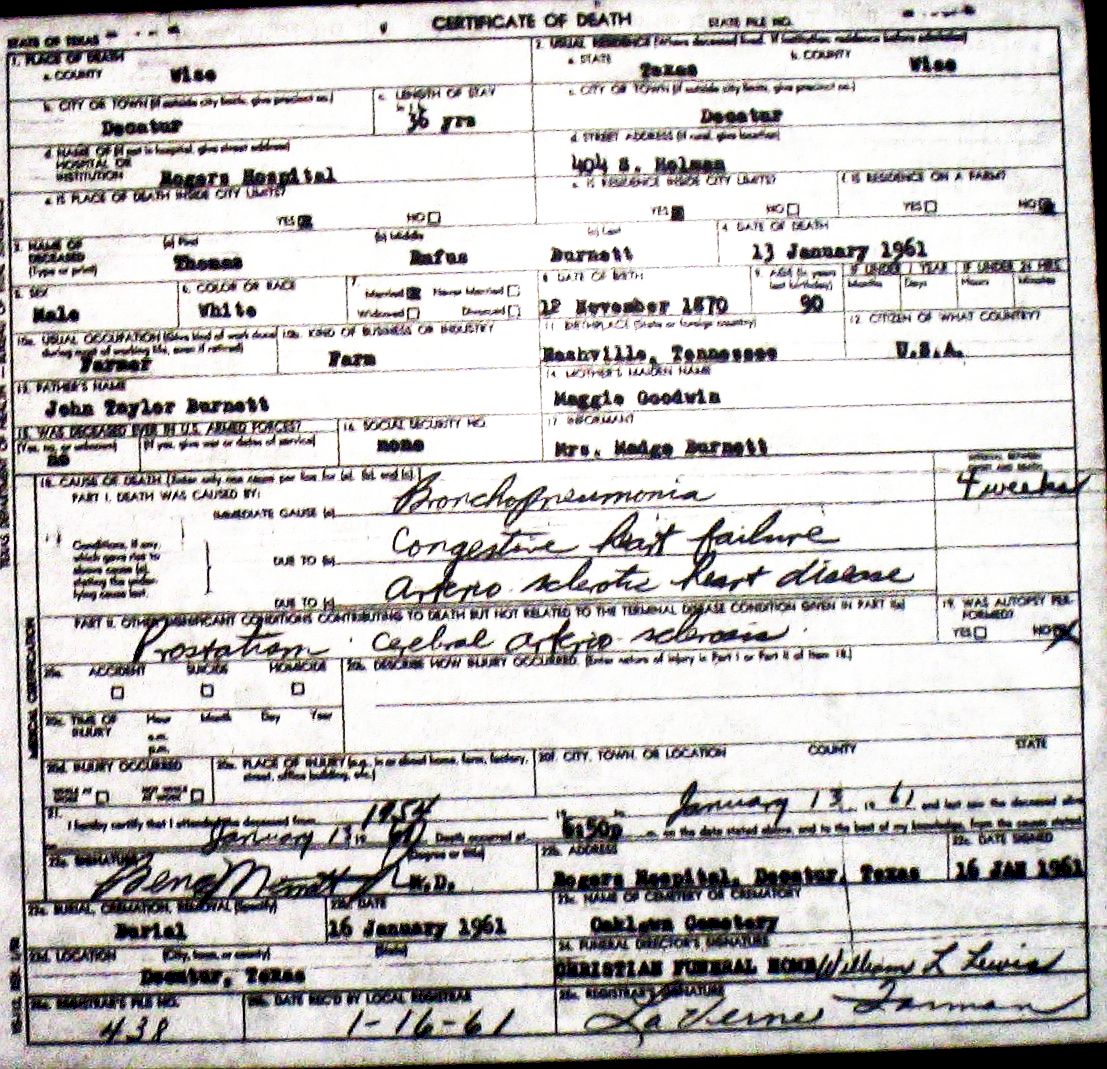 CERTIFICATE OF DEATH STATE FILE NO.
STATE OF TEXAS
1. PLACE OF DEATH 2. USUAL RESIDENCE (Where deceased lived. If institution, residence before admission)
a. COUNTY Wise a. STATE Texas b. COUNTY Wise
b. CITY OR TOWN (If outside city limits, give precinct no.) c. LENGTH OF STAY c. CITY OR TOWN (If outside city limits, give precinct no.)
Decatur 36 yrs Decatur
d. NAME OF (If not in hospital, give street address) d. STREET ADDRESS (If rural, give location)
HOSPITAL OR
INSTITUTION Rogers Hospital 404 S. Holman
e. IS PLACE OF DEATH INSIDE CITY LIMITS? e. IS RESIDENCE INSIDE CITY LIMITS? f. IS RESIDENCE ON A FARM?
YES NO YES NO YES NO
3. NAME OF DECEASED (Type or print) (a) First (b) Middle (c) Last 4. DATE OF DEATH
Thomas Rufus Burnett 13 January 1961
5. SEX 6. COLOR OR RACE 7. Married Never Married Widowed Divorced 8. DATE OF BIRTH 9. AGE (In years last birthday) IF UNDER 1 YEAR Months Days IF UNDER 24 HRS. Hours Minutes
Male White 12 November 1870 90
10a. USUAL OCCUPATION (Give kind of work done during most of working life, even if retired) 10b. KIND OF BUSINESS OR INDUSTRY 11. BIRTHPLACE (State or foreign country) 12. CITIZEN OF WHAT COUNTRY?
Farmer Farm Nashville, Tennessee U.S.A.
13. FATHER'S NAME 14. MOTHER'S MAIDEN NAME
John Taylor Burnett Maggie Goodwin
15. WAS DECEASED EVER IN U.S. ARMED FORCES? 16. SOCIAL SECURITY NO. 17. INFORMANT
(Yes, no, or unknown) (If yes, give war or dates of service)
no none Mrs. Madge Burnett
18. CAUSE OF DEATH (Enter only one cause per line for (a), (b), and (c).) INTERVAL BETWEEN ONSET AND DEATH
PART I. DEATH WAS CAUSED BY:
IMMEDIATE CAUSE (a) Bronchopneumonia 4 weeks
Conditions, if any, which gave rise to above cause (a), stating the underlying cause last.
DUE TO (b) Congestive heart failure
DUE TO (c) Arterio sclerotic heart disease
PART II. OTHER SIGNIFICANT CONDITIONS CONTRIBUTING TO DEATH BUT NOT RELATED TO THE TERMINAL DISEASE CONDITION GIVEN IN PART I(a) 19. WAS AUTOPSY PERFORMED?
Cerebral arterio-sclerosis YES NO
20a. ACCIDENT SUICIDE HOMICIDE 20b. DESCRIBE HOW INJURY OCCURRED. (Enter nature of injury in Part I or Part II of item 18.)
20c. TIME OF INJURY Hour Month Day Year
a.m.
p.m.
20d. INJURY OCCURRED 20e. PLACE OF INJURY (e.g., in or about home, farm, factory, street, office building, etc.) 20f. CITY, TOWN, OR LOCATION COUNTY STATE
WHILE AT WORK NOT WHILE AT WORK
21. I hereby certify that I attended the deceased from 1954 to January 13 19 61 and last saw the deceased alive
on January 13 19 61 Death occurred at 6:50p m. on the date stated above, and to the best of my knowledge, from the causes stated.
22a. SIGNATURE (Degree or title) 22b. ADDRESS 22c. DATE SIGNED
M.D. Rogers Hospital, Decatur, Texas 16 JAN 1961
23a. BURIAL, CREMATION, REMOVAL (Specify) 23b. DATE 23c. NAME OF CEMETERY OR CREMATORY
Burial 16 January 1961 Oaklawn Cemetery
23d. LOCATION (City, town, or county) (State) 24. FUNERAL DIRECTOR'S SIGNATURE
Decatur, Texas CHRISTIAN FUNERAL HOME William L Lewis
25a. REGISTRAR'S FILE NO. 25b. DATE REC'D BY LOCAL REGISTRAR 25c. REGISTRAR'S SIGNATURE
438 1-16-61 La Verne
MEDICAL CERTIFICATION